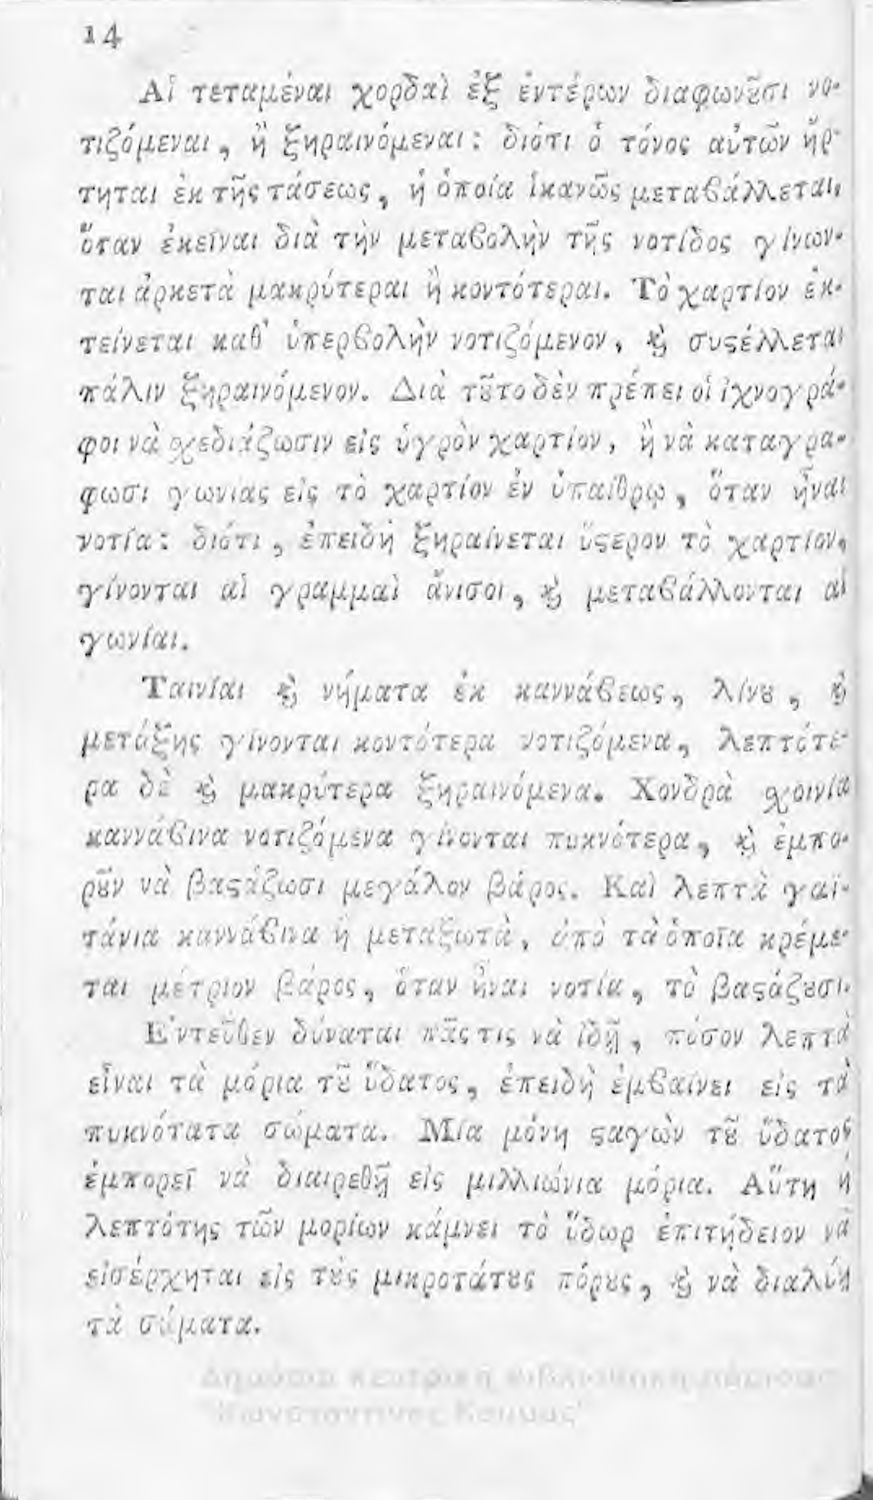 14
Αἱ τεταμέναι χορδαὶ ἐξ ἐντέρων διαφωνȣ͂σι νο-
τιζόμεναι, ἢ ξηραινόμεναι: διότι ὁ τόνος αὐτῶν ἤρ-
τηται ἐκ τῆς τάσεως, ἡ ὁποία ἱκανῶς μεταβάλλεται,
ὅταν ἐκεῖναι διὰ τὴν μεταβολὴν τῆς νοτίδος γίνων-
ται ἀρκετὰ μακρύτεραι ἢ κοντότεραι. Τὸ χαρτίον ἐκ-
τείνεται καθ' ὑπερβολὴν νοτιζόμενον, ϗ συϛέλλεται
πάλιν ξηραινόμενον. Διὰ τȣ͂το δὲν πρέπει οἱ ἰχνογρά-
φοι νὰ σχεδιάζωσιν εἰς ὑγρὸν χαρτίον, ἢ νὰ καταγρα-
φωσι γωνίας εἰς τὸ χαρτίον ἐν ὑπαίθρῳ, ὅταν ἦναι
νοτία: διότι, ἐπειδὴ ξηραίνεται ὕϛερον τὸ χαρτίον,
γίνονται αἱ γραμμαὶ ἄνισοι, ϗ μεταβάλλονται αἱ
γωνίαι.
Ταινίαι ϗ νήματα ἐκ καννάβεως, λίνȣ, ϗ
μετάξης γίνονται κοντότερα νοτιζόμενα, λεπτότε-
ρα δὲ ϗ μακρύτερα ξηραινόμενα. Χονδρὰ σχοινία
καννάβινα νοτιζόμενα γίνονται πυκνότερα, ϗ ἐμπο-
ρȣ͂ν νὰ βαϛάζωσι μεγάλον βάρος. Καὶ λεπτὰ γαϊ-
τάνια καννάβινα ἢ μεταξωτὰ, ἀπὸ τὰ ὁποῖα κρέμε-
ται μέτριον βάρος, ὅταν ἦναι νοτία, τὸ βαϛάζȣσι.
Ἐντεῦθεν δύναται πᾶς τις νὰ ἰδῇ, πόσον λεπτὰ
εἶναι τὰ μόρια τȣ͂ ὕδατος, ἐπειδὴ ἐμβαίνει εἰς τὰ
πυκνότατα σώματα. Μία μόνη ϛαγὼν τȣ͂ ὕδατος
ἐμπορεῖ νὰ διαιρεθῇ εἰς μιλλιώνια μόρια. Αὕτη ἡ
λεπτότης τῶν μορίων κάμνει τὸ ὕδωρ ἐπιτήδειον νὰ
εἰσέρχηται εἰς τȣ̀ς μικροτάτȣς πόρȣς, ϗ νὰ διαλύῃ
τὰ σώματα.
Δημόσια κεντρική βιβλιοθήκη
"Κωνσταντίνος Κούμας"